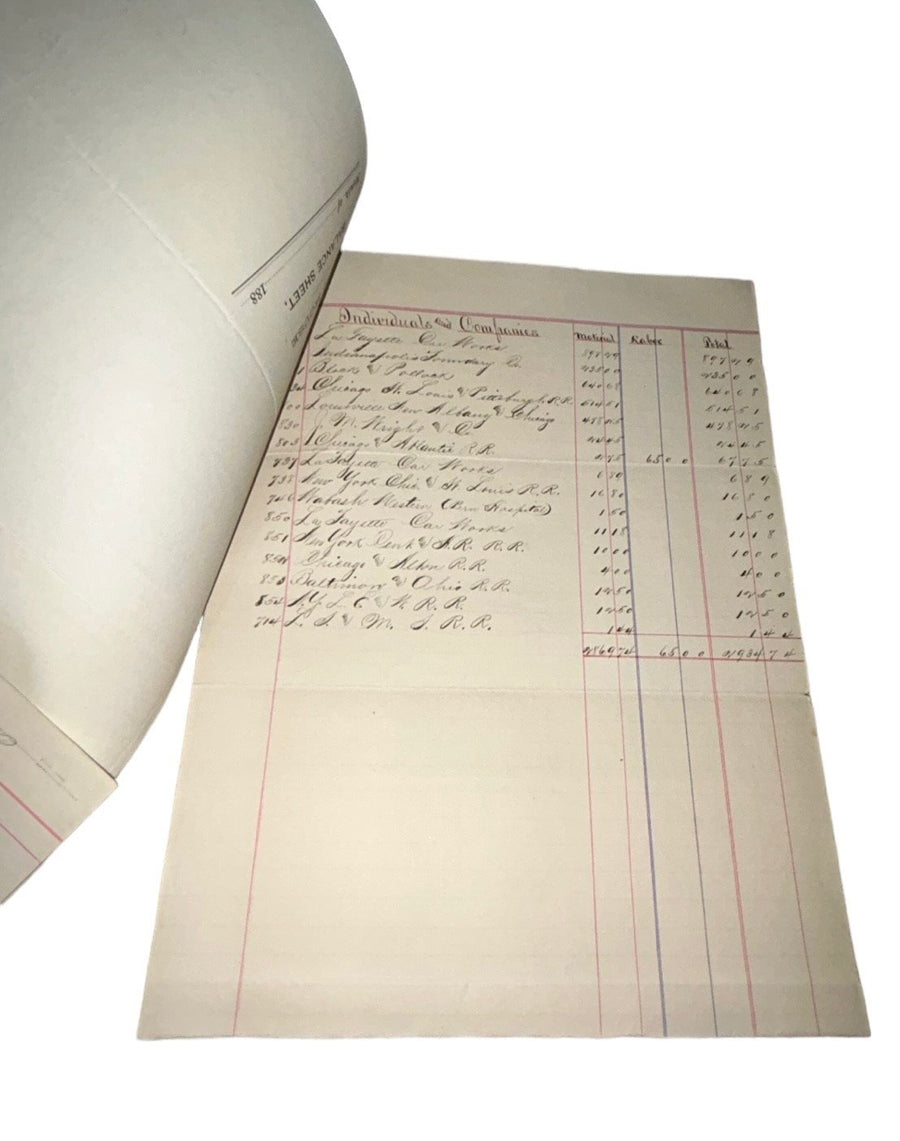 BALANCE SHEET,
188
Individuals and Companies Material Labor Total
La Fayette Car Works 897 49 897 49
Indianapolis Foundry Co. 425 00 425 00
Block & Pollock 640 68 640 68
Chicago St. Louis & Pittsburgh R.R. 514 51 514 51
Louisville New Albany & Chicago
830 J. M. Knight & Co. 44 45 44 45
803 Chicago & Atlantic R.R. 2 75 65 00 67 75
737 La Fayette Car Works 6 89 6 89
738 New York Chic & St. Louis R.R. 16 80 16 80
746 Wabash Western (Peru Hospital) 1 50 1 50
850 La Fayette Car Works 11 18 11 18
851 New York Cent & H.R. R.R. 10 00 10 00
Chicago & Alton R.R. 4 00 4 00
Baltimore & Ohio R.R. 12 50 12 50
854 N.Y. L. E & W. R.R. 12 50 12 50
714 L. S. & M. S. R.R. 1 44 1 44
2869 74 65 00 2934 74